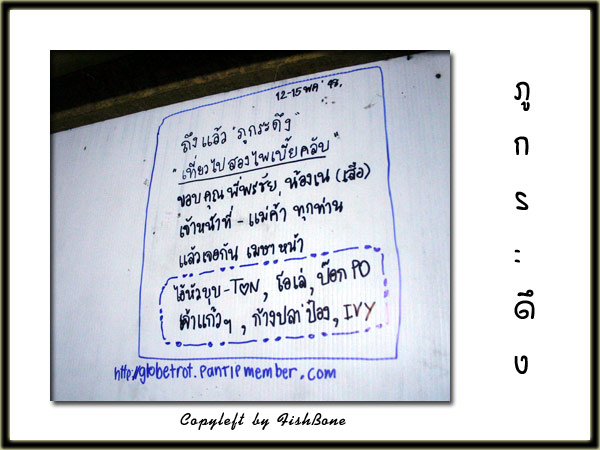 12-15 พค' 48.
ถึงแล้ว "ภูกระดึง"
"เที่ยวไปสองไพเบี้ยคลับ"
ขอบคุณ พี่พรชัย, น้องเน (เสือ)
เจ้าหน้าที่ - แม่ค้า ทุกท่าน
แล้วเจอกัน เมษาหน้า
ไอ้หัวขบ - TON, โอเล่, ป๊อก PO
เค้าแก้วฯ, ก้างปลา ป๋อง, IVY
http://globetrot.pantipmember.com
ภูกระดึง
Copyleft by FishBone